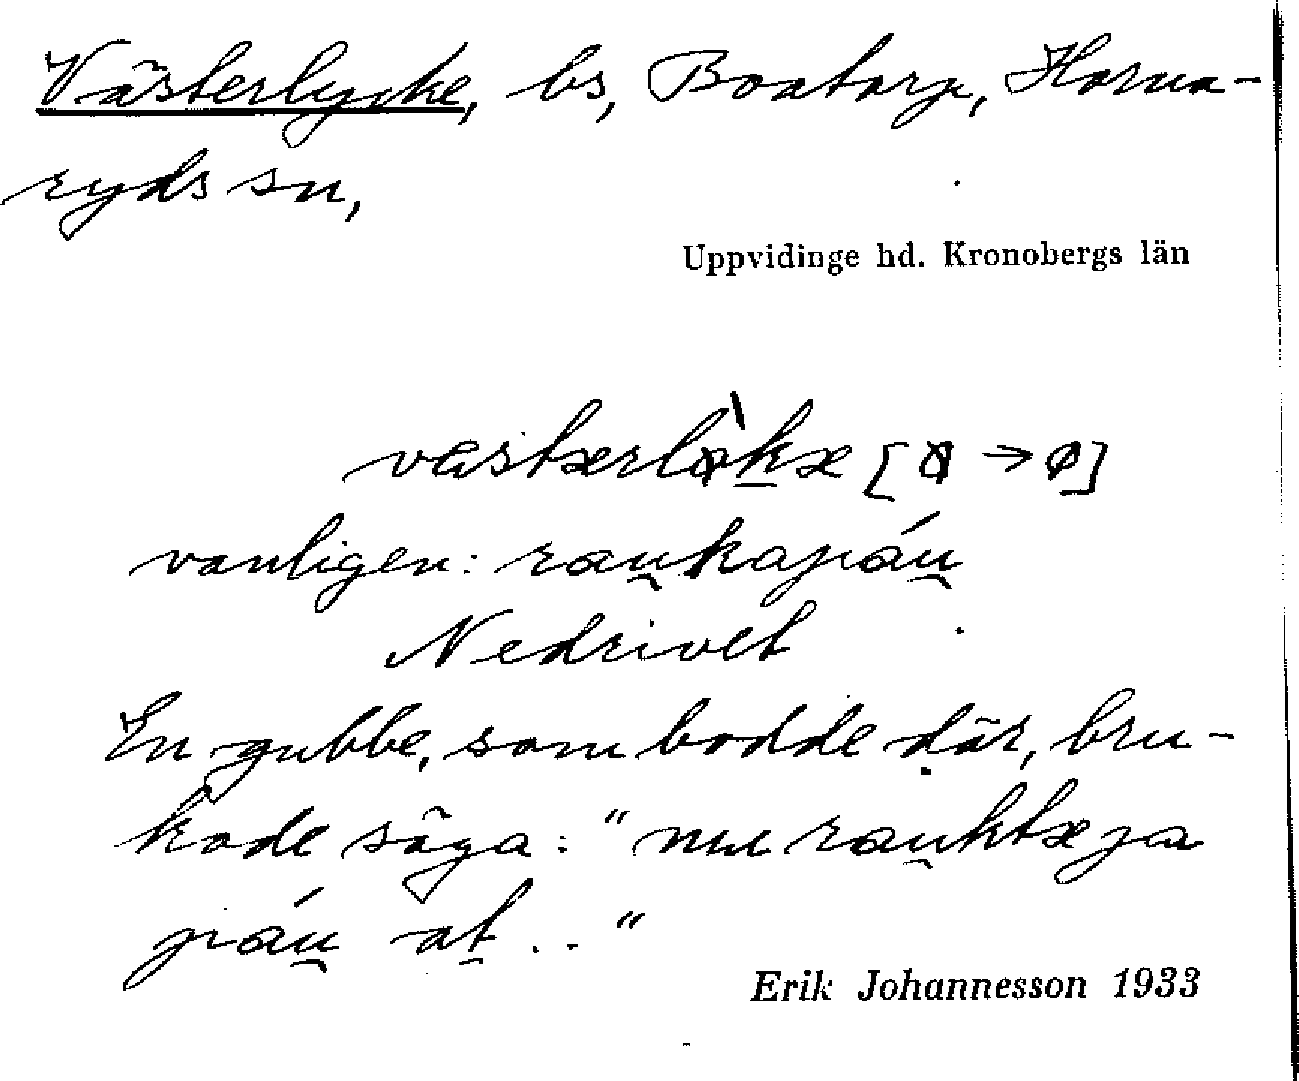 Västerlycke, bs, Boatorp, Horna-
ryds sn,
Uppvidinge hd. Kronobergs län
væstærlø̀k̲æ [ꞛ → ø]
vanligen: rau̯kapáu̯
Nedrivet
En gubbe, som bodde där, bru-
kade säga: "nu rau̯ktæ ja
páu̯ at̲ .."
Erik Johannesson 1933